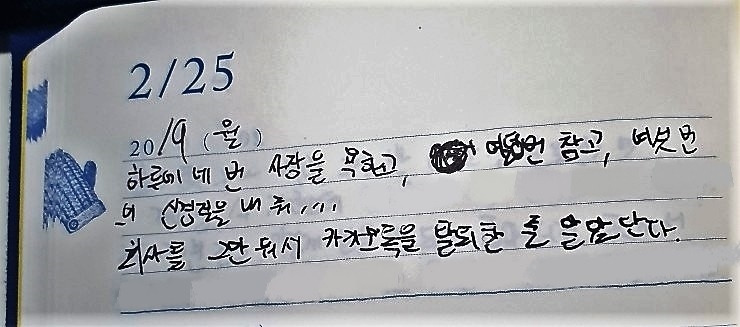 2/25
2019 (월)
하루에 네 번 사장을 욕하고, 여덟번 참고, 여섯 번
의 신경질을 내 줘,,,,
회사를 그만둬서 카카오톡을 탈퇴한 줄 알았단다.